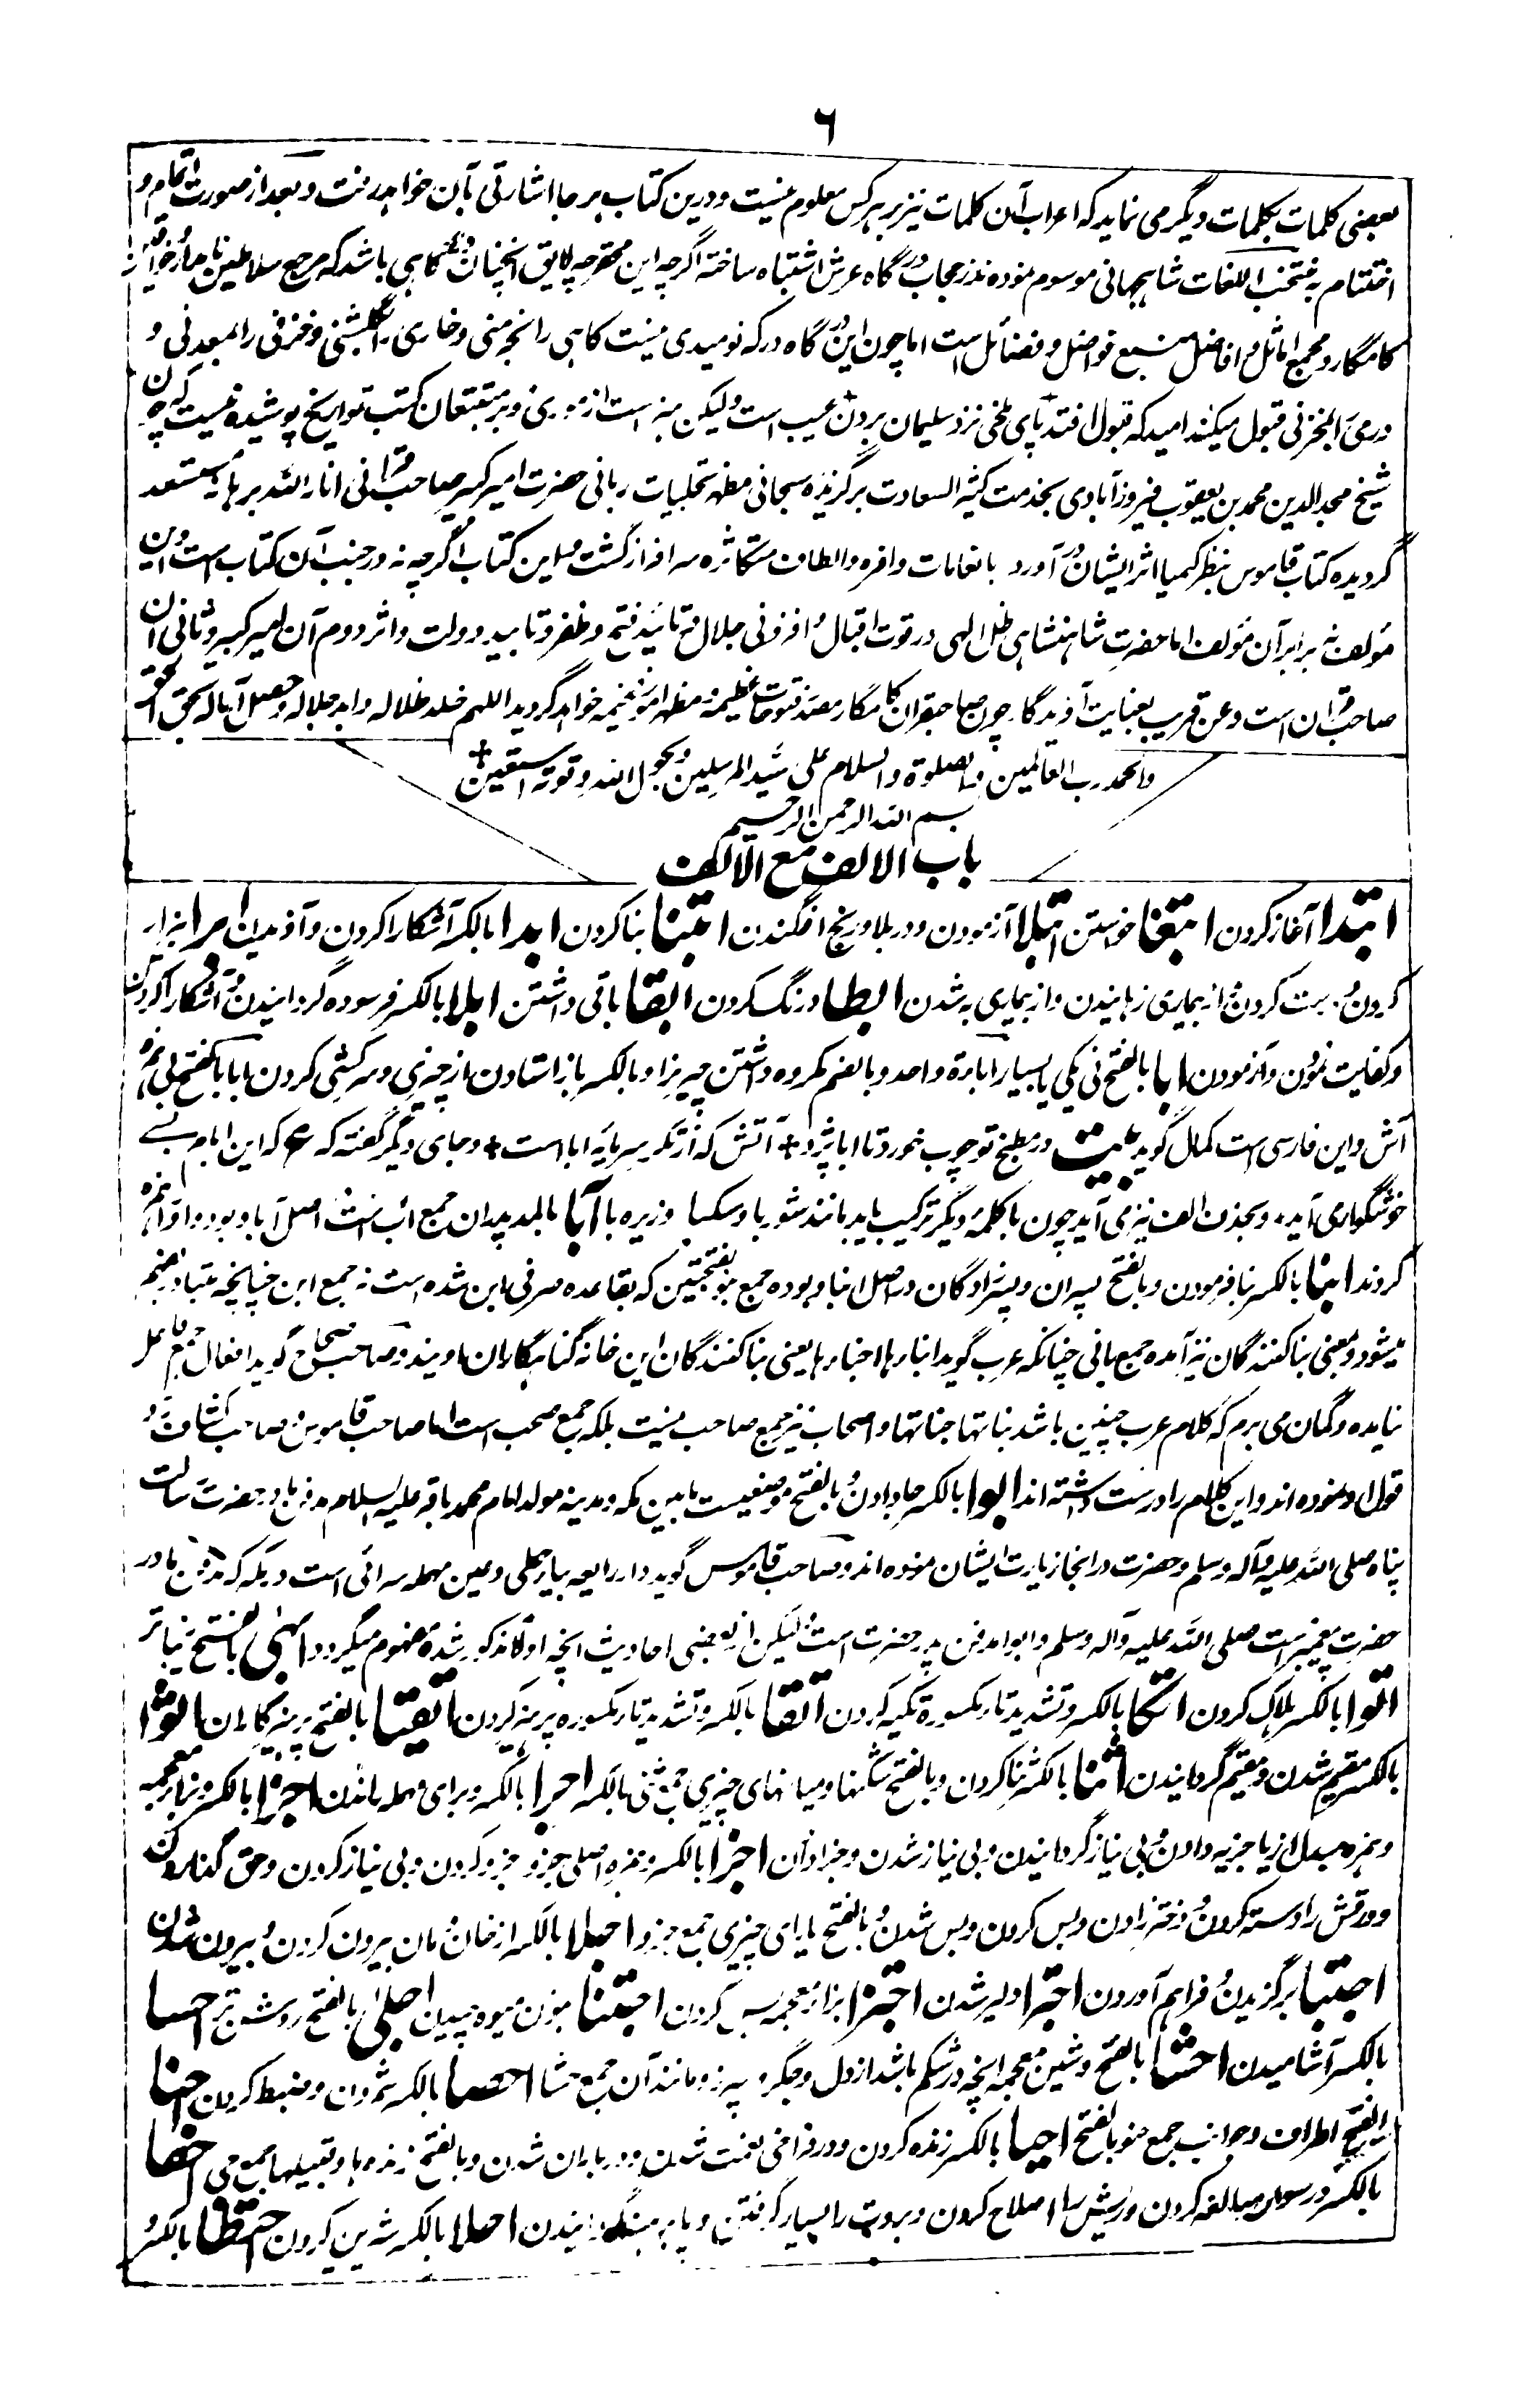 ٦
بعضی کلمات بکلمات دیگر می نماید که اعراب آن کلمات نیز بر هر کس معلوم نیست و درین کتاب هر جا اشارتی بآن خواهد رفت و بعد از صورت اتمام و
اختتام به منتخب اللغات شاهجهانی موسوم نموده نذر حجاب درگاه عرش اشتباه ساخته اگرچه این محقر چه لایق آنچنان درگاهی باشد که مرجع سلاطین نامدار و خواقین
کامگار و مجمع اماثل و افاضل منبع فواضل و فضائل است اما چون این درگاه درگه نومیدی نیست کاهی را بخرمنی و خاری را بگلشنی و خزفی را بمعدنی و
درمی را بمخزنی قبول میکنند امید که قبول افتد پای ملخی نزد سلیمان بردن عیب است ولیکن هنر است از موری و بر متتبعان کتب تواریخ پوشیده نیست که چون
شیخ مجد الدین محمد بن یعقوب فیروزآبادی بخدمت کثیر السعادت برگزیده سبحانی مظهر تجلیات ربانی حضرت امیر کبیر صاحبقرانی انار الله برهانه مستعد
گردیده کتاب قاموس بنظر کیمیا اثر ایشان در آورد بانعامات وافره و الطاف متکاثره سرافراز گشت و این کتاب اگرچه نه در جنب آن کتاب است و این
مؤلف نه برابر آن مؤلف اما حضرت شاهنشاهی ظل الهی در قوت اقبال و افزونی جلال و تائید فتح و ظفر و تابید دولت و اثر دوم آن امیر کبیر و ثانی آن
صاحبقران است و عن قریب بعنایت آفریدگار چون صاحبقران کامگار مصدر فتوحات عظیمه و مظهر امور فخیمه خواهد گردید اللهم خلد ظلاله و ابد جلاله و حصل آماله بحق الحق
والحمد رب العالمین والصلوة والسلام علی سید المرسلین و بحول الله و قوته استعین
بسم الله الرحمن الرحیم
باب الالف مع الالف
ابتدا آغاز کردن ابتغا خواستن ابتلا آزمودن و در بلا و رنج افگندن ابتنا بنا کردن ابدا بالکسر آشکارا کردن و آفریدن ابرا بیزار
کردن و برت کردن و از بیماری رهانیدن و از بیماری به شدن ابطا درنگ کردن ابقا باقی داشتن ابلا بالکسر فرسوده گردانیدن و آشکارا کردن
و کفایت نمودن و آزمودن ابا بالفتح نی یکی یا بسیار اباءة واحد و بالضم مکروه داشتن چیزیرا و بالکسر باز استادن از چیزی و سرکشی کردن
آش و این فارسی است کمال گوید بیت در مطبخ تو چوب خورد تا ابا پزد آتش که از تکبر سرمایه ابا است و جای دیگر گفته که ع که این ابام بسی
خوشگواری آید و بحذف الف نیز می آید چون با کلمه دیگر ترکیب یابد مانند شوربا و سکبا و زیره با آبا بالمد پدران جمع اب است اصل آباو بود واو را همزه
کردند ابنا بالکسر بنا فرمودن و بالفتح پسران و پسرزادگان در اصل ابناو بوده جمع بنو بفتحتین که بقاعده صرفی ابن شده است نه جمع ابن چنانچه متبادر بفهم
میشود و بمعنی بنا کنندگان نیز آمده جمع بانی چنانکه عرب گوید ابناءها اجناءها یعنی بنا کنندگان این خانه گناهگاران اویند و صاحب صحاح گوید افعال جمع فاعل
نیامده و گمان می برم که کلام عرب چنین باشد بناتها جناتها و اصحاب نیز جمع صاحب نیست بلکه جمع صحب است اما صاحب قاموس و صاحب کشاف رد
قول او نموده اند و این کلام را درست داشته اند ابوا بالکسر جا دادن و بالفتح موضعیست مابین مکه و مدینه مولد امام محمد باقر علیه السلام مدفن مادر حضرت رسالت
پناه صلی الله علیه وآله وسلم و حضرت در انجا زیارت ایشان نموده اند و صاحب قاموس گوید دار رابعه بیاء حطی و عین مهمله سرائی است در مکه که مدفن مادر
حضرت پیغمبر است صلی الله علیه وآله وسلم و ابوا مدفن پدر حضرت است لیکن از بعضی احادیث انچه اولا مذکور شده مفهوم میگردد ابهی بالفتح زیباتر
اتوا بالکسر هلاک کردن اتکا بالکسر و تشدید تاء مکسوره تکیه کردن اتقا بالکسر و تشدید تاء مکسوره پرهیز کردن اتقیا بالفتح پرهیزکاران اثوا
بالکسر مقیم شدن و مقیم گردانیدن اثنا بالکسر ثنا کردن و بالفتح شکنها و میانهای چیزی جمع ثنی بالکسر اجرا بالکسر و برای مهمله راندن اجزا بالکسر و بزاء معجمه
و همزه مبدل از یا جزیه دادن و بی نیاز گردانیدن و بی نیاز شدن و جزا دادن اجزا بالکسر و همزه اصلی جزو جزو کردن و بی نیاز کردن و حق گذاردن
و درفش را دسته کردن و دختر زادن و بس کردن و بس شدن و بالفتح پارهای چیزی جمع جزو اجلا بالکسر از خان و مان بیرون کردن و بیرون شدن
اجتبا برگزیدن و فراهم آوردن اجترا دلیر شدن اجتزا بزاء معجمه بس کردن اجتنا بنون میوه چیدن اجلی بالفتح روشن تر احسا
بالکسر آشامیدن احشا بالفتح و شین معجمه انچه در شکم باشد از دل و جگر و سپرز و مانند آن جمع حشا احصا بالکسر شمردن و ضبط کردن احنا
بالفتح اطراف و جوانب جمع حنو بالفتح احیا بالکسر زنده کردن و در فراخی نعمت شدن و در باران شدن و بالفتح زنده ها و قبیلها جمع حی احفا
بالکسر در سوال مبالغه کردن و ریش را اصلاح کردن و بروت را بسیار گرفتن احلا بالکسر شیرین کردن احتظا بالکسر